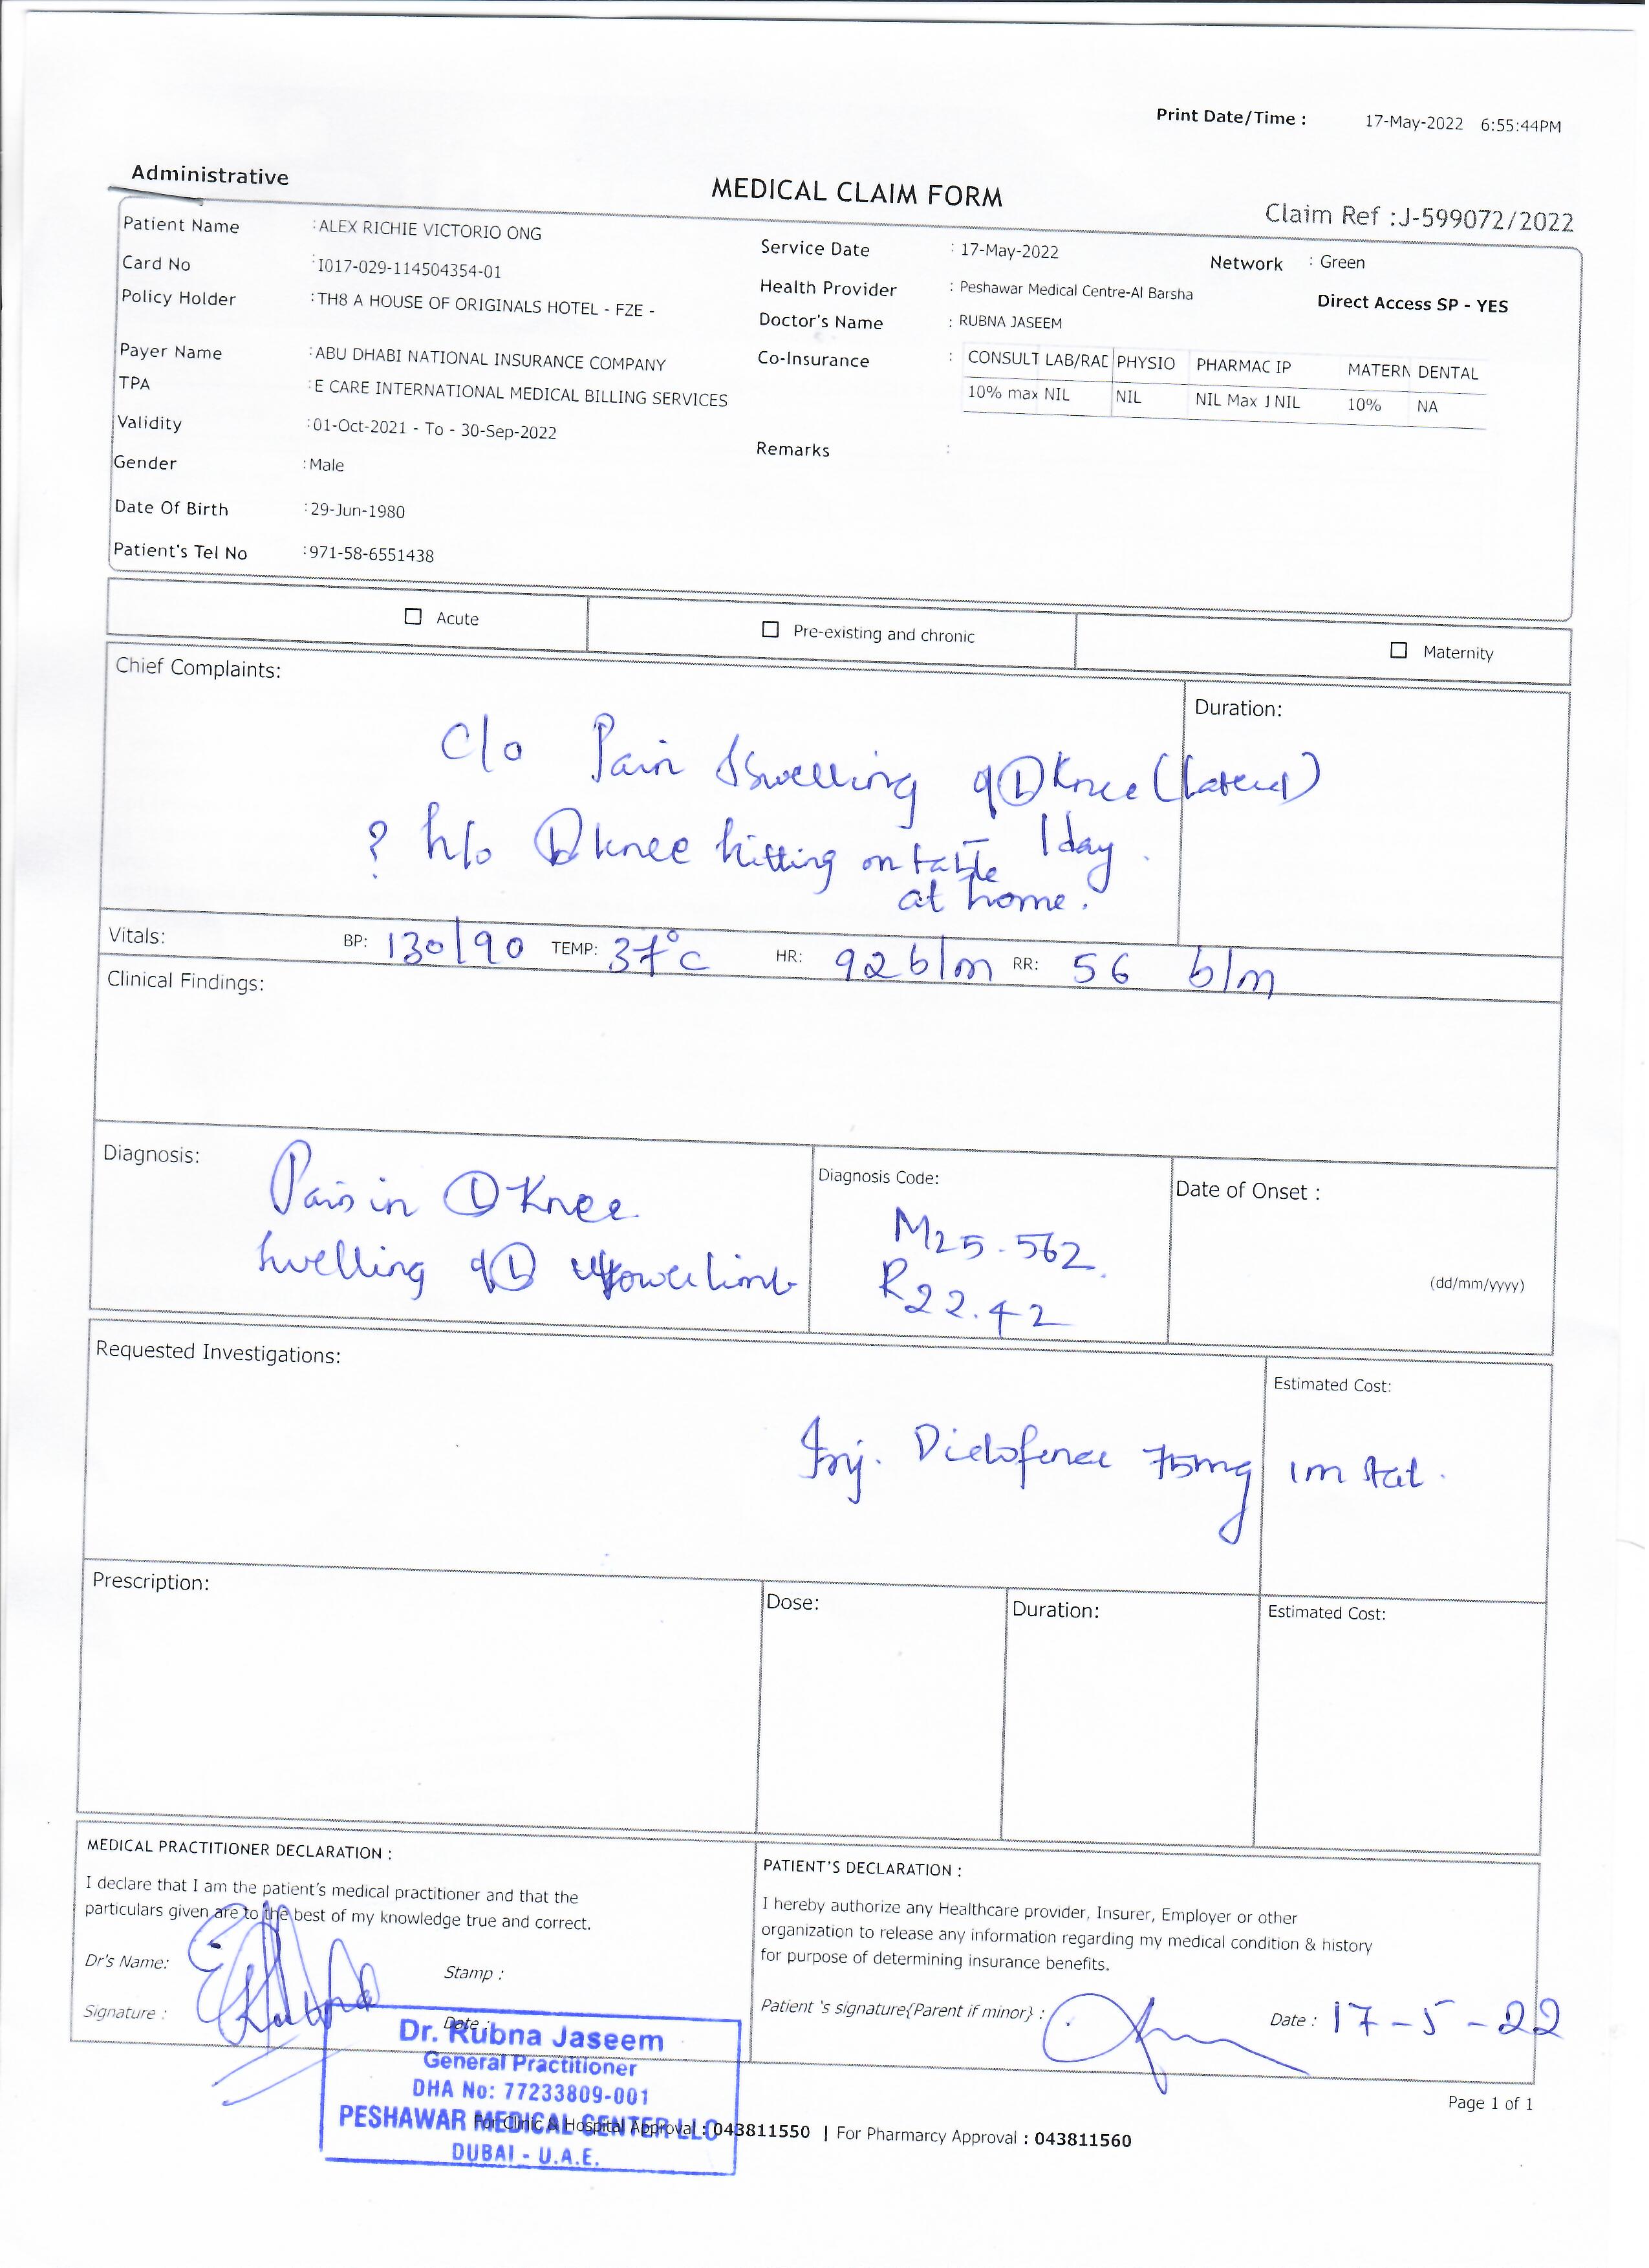 Print Date/Time : 17-May-2022 6:55:44PM
Administrative
MEDICAL CLAIM FORM
Claim Ref :J-599072/2022
Patient Name :ALEX RICHIE VICTORIO ONG
Card No :I017-029-114504354-01
Policy Holder :TH8 A HOUSE OF ORIGINALS HOTEL - FZE -
Payer Name :ABU DHABI NATIONAL INSURANCE COMPANY
TPA :E CARE INTERNATIONAL MEDICAL BILLING SERVICES
Validity :01-Oct-2021 - To - 30-Sep-2022
Gender :Male
Date Of Birth :29-Jun-1980
Patient's Tel No :971-58-6551438
Service Date : 17-May-2022
Network : Green
Health Provider : Peshawar Medical Centre-Al Barsha
Direct Access SP - YES
Doctor's Name : RUBNA JASEEM
Co-Insurance : CONSULT LAB/RAD PHYSIO PHARMAC IP MATERN DENTAL
10% max NIL NIL NIL Max 1 NIL 10% NA
Remarks :
Acute
Pre-existing and chronic
Maternity
Chief Complaints:
Duration:
C/o Pain & swelling of (L) Knee (Lateral)
? h/o (L) knee hitting on table 1 day.
at home.
Vitals: BP: 130/90 TEMP: 37°C HR: 92 b/m RR: 56 b/m
Clinical Findings:
Diagnosis:
Pain in (L) Knee
Swelling of (L) lower limb
Diagnosis Code:
M25.562.
R22.42
Date of Onset :
(dd/mm/yyyy)
Requested Investigations:
Estimated Cost:
Inj. Diclofenac 75mg im stat.
Prescription:
Dose:
Duration:
Estimated Cost:
MEDICAL PRACTITIONER DECLARATION :
I declare that I am the patient's medical practitioner and that the
particulars given are to the best of my knowledge true and correct.
Dr's Name:
Stamp :
Signature :
Date :
Dr. Rubna Jaseem
General Practitioner
DHA No: 77233809-001
PESHAWAR MEDICAL CENTER LLC
DUBAI - U.A.E.
PATIENT'S DECLARATION :
I hereby authorize any Healthcare provider, Insurer, Employer or other
organization to release any information regarding my medical condition & history
for purpose of determining insurance benefits.
Patient 's signature{Parent if minor} :
Date : 17-5-22
Page 1 of 1
For Clinic & Hospital Approval : 043811550 | For Pharmarcy Approval : 043811560